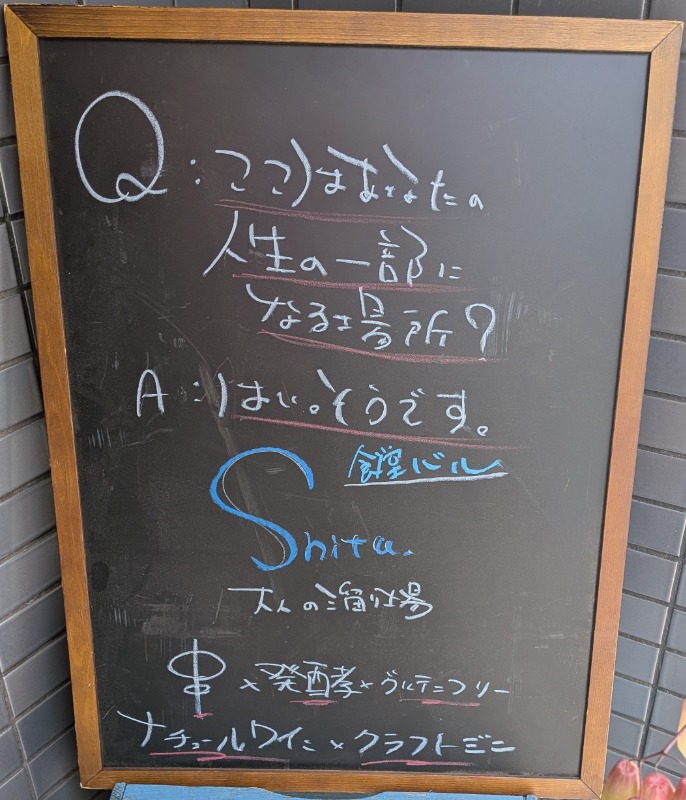 Q:ここはあなたの
人生の一部に
なる場所?
A:はい。そうです。
食堂バル
Shita.
大人の溜り場
串×発酵×グルテンフリー
ナチュールワイン×クラフトジン